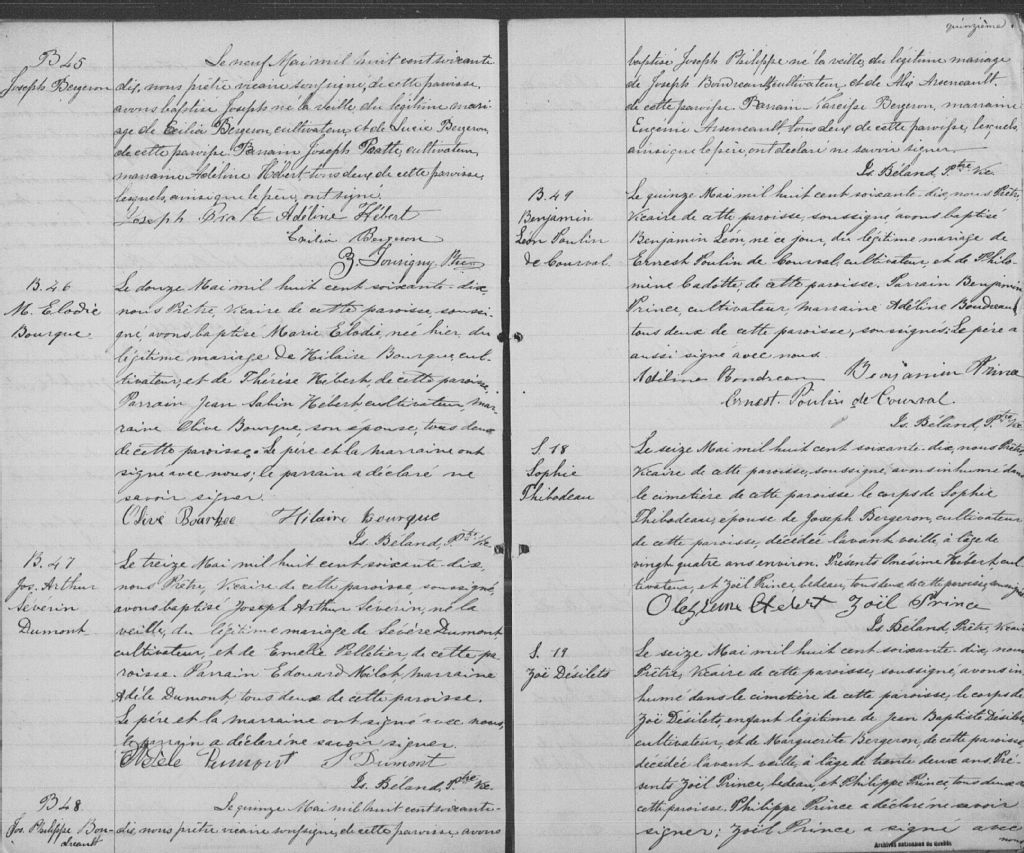 B 45
Joseph Bergeron
Le neuf Mai mil huit cent soixante
dix, nous prêtre vicaire soussigné, de cette paroisse,
avons baptisé Joseph né la veille du légitime mari-
age de Exilia Bergeron, cultivateur, et de Lucie Bergeron,
de cette paroisse. Parrain Joseph Pratte, cultivateur,
marraine Adéline Hébert tous deux de cette paroisse,
lesquels, ainsi que le père, ont signé.
Joseph Pratt Adéline Hébert
Exilia Bergeron
Z Tourigny Ptre
B. 46
M. Elodie
Bourque
Le douze Mai mil huit cent soixante-dix,
nous Prêtre, Vicaire de cette paroisse, soussi-
gné, avons baptisé Marie Elodie, née hier, du
légitime mariage de Hilaire Bourque, cul-
tivateur, et de Thérèse Hébert, de cette paroisse.
Parrain Jean Sabin Hébert, cultivateur, mar-
raine Olive Bourque, son épouse, tous deux
de cette paroisse. Le père et la marraine ont
signé avec nous, le parrain a déclaré ne
savoir signer.
Olive Bourkee Hilaire Bourque
Is. Béland, Ptre Vic.
B. 47
Jos. Arthur
Séverin
Dumont
Le treize Mai mil huit cent soixante dix,
nous Prêtre, Vicaire de cette paroisse, soussigné,
avons baptisé Joseph Arthur Séverin, né la
veille, du légitime mariage de Sévère Dumont
cultivateur, et de Emelie Pelletier, de cette pa-
roisse. Parrain Edouard Milot, marraine
Adèle Dumont, tous deux de cette paroisse.
Le père et la marraine ont signé avec nous,
le parrain a déclaré ne savoir signer.
Adele Dumont S Dumont
Is. Béland, Ptre Vic.
B 48
Jos. Philippe Bou-
dreault
Le quinze Mai mil huit cent soixante-
dix, nous prêtre vicaire soussigné, de cette paroisse, avons
quinzième
baptisé Joseph Philippe né la veille, du légitime mariage
de Joseph Boudreault, cultivateur, et de Alix Arseneault.
de cette paroisse. Parrain Narcisse Bergeron, marraine
Eugenie Arseneault, tous deux de cette paroisse, lesquels,
ainsi que le père, ont déclaré ne savoir signer.
Is. Béland, Ptre Vic.
B. 49
Benjamin
Léon Poulin
de Courval
Le quinze Mai mil huit cent soixante-dix, nous Prêtre,
Vicaire de cette paroisse, soussigné avons baptisé
Benjamin Léon, né ce jour, du légitime mariage de
Ernest Poulin de Courval, cultivateur, et de Philo-
mène Cadotte, de cette paroisse. Parrain Benjamin
Prince, cultivateur, marraine Adéline Boudreau,
tous deux de cette paroisse, soussignés. Le père a
aussi signé avec nous.
Adéline Bondreau Benjamin Prince
Ernest Poulin de Courval.
Is. Béland, Ptre Vic.
S. 18
Sophie
Thibodeau
Le seize Mai mil huit cent soixante-dix, nous Prêtre,
Vicaire de cette paroisse, soussigné, avons inhumé dans
le cimetière de cette paroisse le corps de Sophie
Thibodeau, épouse de Joseph Bergeron, cultivateur
de cette paroisse, décédée l'avant veille à l'âge de
vingt quatre ans environ. Présents Onésime Hébert, cul-
tivateur, et Zoël Prince, bedeau, tous deux de cette paroisse,
Hebert Zoël Prince
Is. Béland, Prêtre, Vicaire
S. 19
Zoë Désilets
Le seize Mai mil huit cent soixante dix, nous
Prêtre, Vicaire de cette paroisse, soussigné, avons in-
humé dans le cimetière de cette paroisse, le corps de
Zoë Désilets, enfant légitime de Jean Baptiste Désilets
cultivateur, et de Marguerite Bergeron, de cette paroisse
décédée l'avant veille, à l'âge de trente deux ans. Pré-
sents Zoël Prince, bedeau, et Philippe Prince, tous deux de
cette paroisse. Philippe Prince a déclaré ne savoir
signer; Zoël Prince a signé avec
nous
Archives nationales du Québec